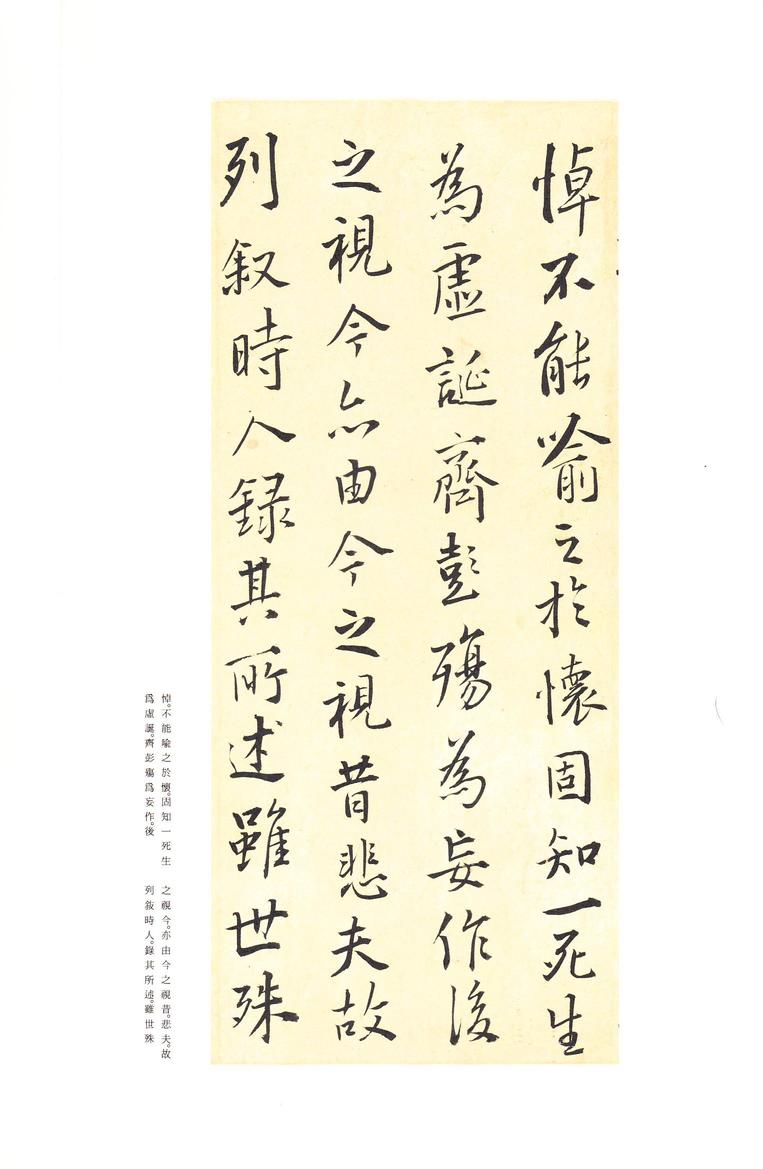 悼不能喻之於懷固知一死生
為虛誕齊彭殤為妄作後
之視今亦由今之視昔悲夫故
列叙時人錄其所述雖世殊
悼。不能喻之於懷。固知一死生
爲虛誕。齊彭殤爲妄作。後
之視今。亦由今之視昔。悲夫。故
列敍時人。錄其所述。雖世殊